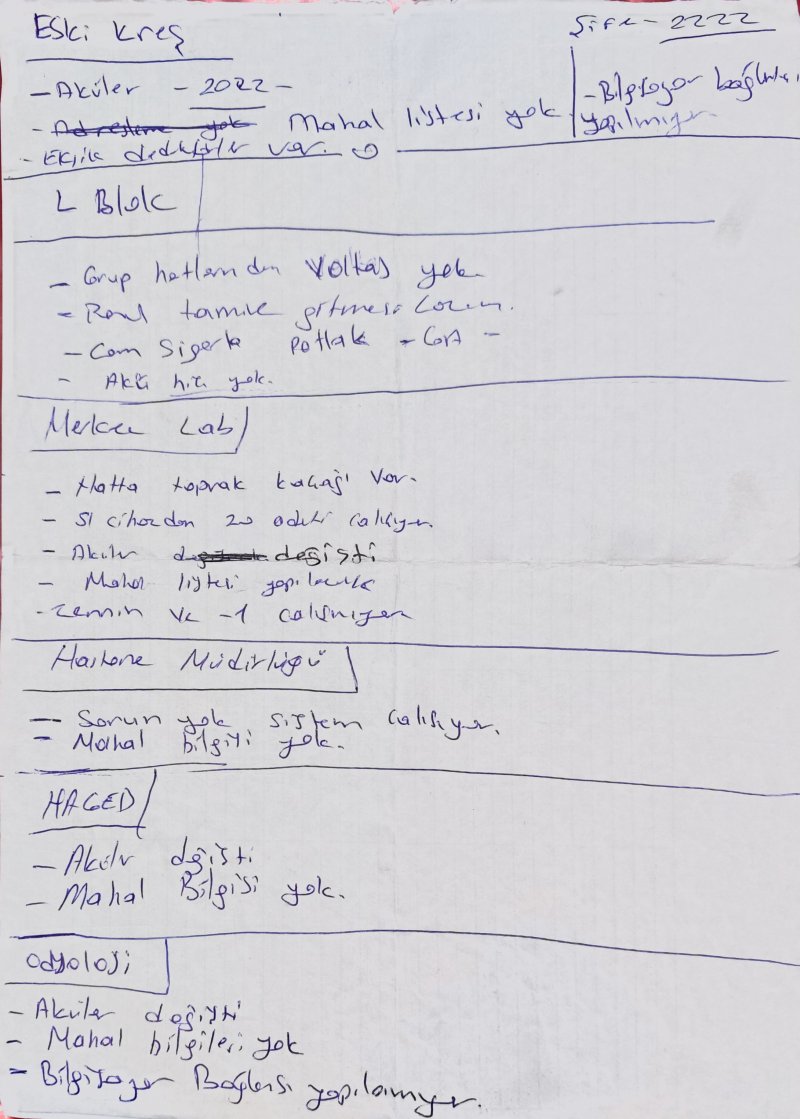 Eski Kreş
Şifre - 2222
- Aküler - 2022 -
- Bilgisayar bağlantısı
yapılmıyor.
- Adresleme yok Mahal listesi yok
- Eksik dedektörler var.
L Blok
- Grup hatlarından Voltaj yok.
- Panel tamire gitmesi lazım.
- Cam Sigorta Patlak - 6A -
- Akü hiç yok.
Merkez Lab
- Hatta toprak kaçağı var.
- 51 cihazdan 20 adeti çalışıyor.
- Aküler değişti
- Mahal listesi yapılacak
- Zemin ve -1 çalışmıyor
Hastane Müdürlüğü
- Sorun yok sistem çalışıyor.
- Mahal bilgisi yok.
HAGED
- Aküler değişti
- Mahal Bilgisi yok.
Odyoloji
- Aküler değişti
- Mahal bilgileri yok
- Bilgisayar Bağlantısı yapılamıyor.